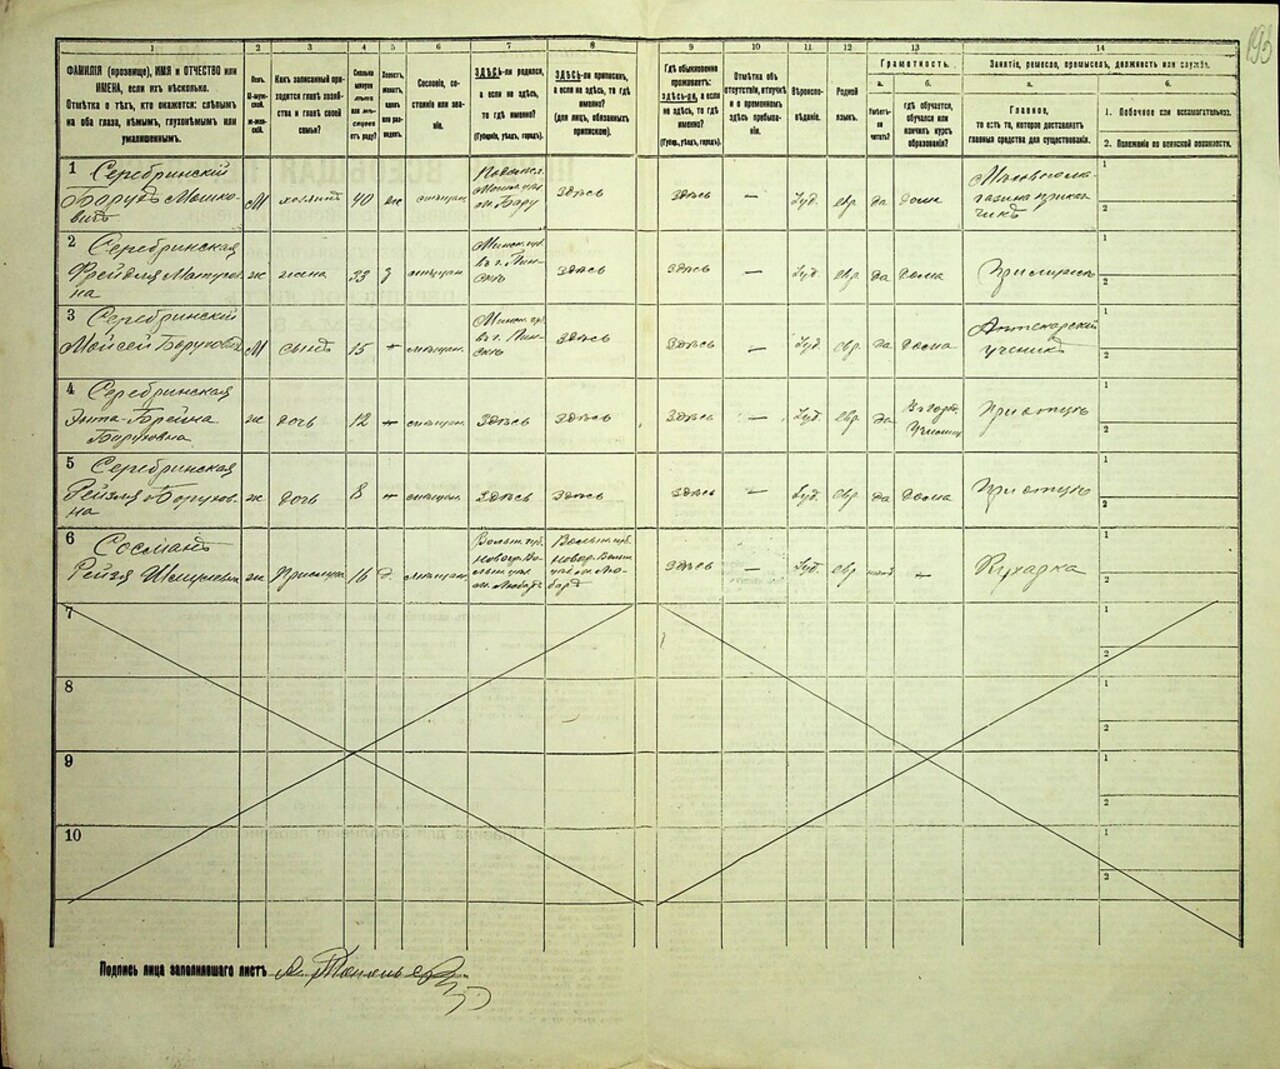 193
1 2 3 4 5 6 7 8 9 10 11 12 13 14
ФАМИЛІЯ (прозвище), ИМЯ и ОТЧЕСТВО или
ИМЕНА, если ихъ нѣсколько.
Отмѣтка о тѣхъ, кто окажется: слѣпымъ
на оба глаза, нѣмымъ, глухонѣмымъ или
умалишеннымъ.
Полъ.
М-муж-
ской.
Ж-жен-
скій.
Какъ записанный при-
ходится главѣ хозяй-
ства и главѣ своей
семьи?
Сколько
минуло
лѣтъ
или мѣ-
сяцевъ
отъ роду?
Холостъ,
женатъ,
вдовъ
или раз-
веденъ.
Сословіе, со-
стояніе или зва-
ніе.
ЗДѢСЬ-ли родился,
а если не здѣсь,
то гдѣ именно?
(Губернія, уѣздъ, городъ).
ЗДѢСЬ-ли приписанъ,
а если не здѣсь, то гдѣ
именно?
(для лицъ, обязанныхъ
припискою).
Гдѣ обыкновенно
проживаетъ:
здѣсь-ли, а если
не здѣсь, то гдѣ
именно?
(Губер., уѣздъ, городъ).
Отмѣтка объ
отсутствіи, отлучкѣ
и о временномъ
здѣсь пребыва-
ніи.
Вѣроиспо-
вѣданіе.
Родной
языкъ.
Грамотность.
а.
Умѣетъ-
ли
читать?
б.
гдѣ обучается,
обучался или
кончилъ курсъ
образованія?
Занятіе, ремесло, промыселъ, должность или служба.
а.
Главное,
то есть то, которое доставляетъ
главныя средства для существованія.
б.
1. Побочное или вспомогательное.
2. Положеніе по воинской повинности.
1 Серебринскій
Борухъ Мошко-
вичъ
М хозяинъ 40 ж мѣщан.
здѣсь здѣсь — Іуд. евр. да дома
2 Серебринская
Фрейдля
на
ж жена 33 з мѣщан.
Минск. губ.
въ г. Пин-
скѣ
здѣсь здѣсь — Іуд. евр. да дома При мужѣ
3 Серебринскій
Мойсей Боруховичъ
М сынъ 15 мѣщан.
Минск. губ.
въ г. Пин-
скѣ
здѣсь здѣсь — Іуд. евр. да дома
Аптекарскій
ученикъ
4 Серебринская
Энта-Брейна
Боруховна
ж дочь 12 мѣщан. здѣсь здѣсь здѣсь — Іуд. евр. да
При отцѣ
5 Серебринская
Рейзля Борухов-
на
ж дочь 8 мѣщан. здѣсь здѣсь здѣсь — Іуд. евр. да дома При отцѣ
6 Сосманъ
Рейзя Шмулевна
ж Прислуга 16 д мѣщан.
Волын. губ.
Новогр. Во-
лын. уѣз.
м. Любаръ
Волын. губ.
Новогр. Волын.
уѣз. м. Лю-
баръ
здѣсь — Іуд. евр. нѣтъ — Кухарка
7
8
9
10
1
2
1
2
1
2
1
2
1
2
1
2
1
2
1
2
1
2
1
2
Подпись лица заполнявшаго листъ